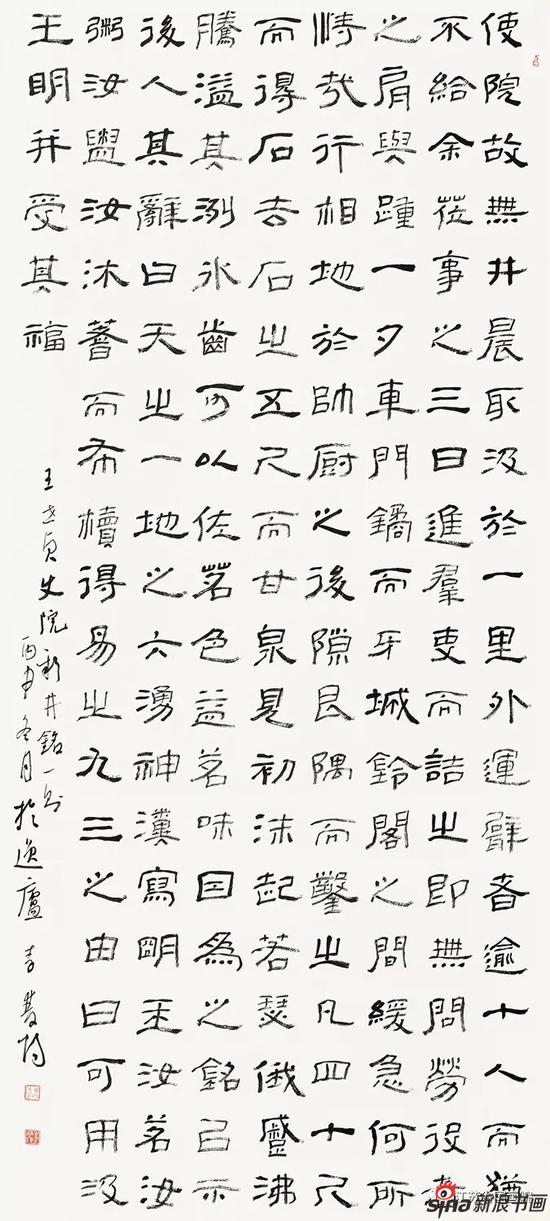 使院故無井晨取汲於一里外運臂者逾十人而猶
不給余蒞事之三日進羣吏而詰之即無問勞役
之肩與踵一夕車門鐍而牙城鈴閣之間緩急何所
恃哉行相地於帥廚之後隙艮隅而鑿之凡四十尺
而得石去石之五尺而甘泉見初沫起若瑟俄沸
騰溢其冽冰齒可以佐茗色益茗味因為之銘以示
後人其辭曰天之一地之六湧神瀵寫明玉汝茗汝
粥汝盥汝沐蓍而布櫝得易之九三之由曰可用汲
王明并受其福
王世貞史院新井銘一則
丙申冬月於逸廬
sina新浪书画